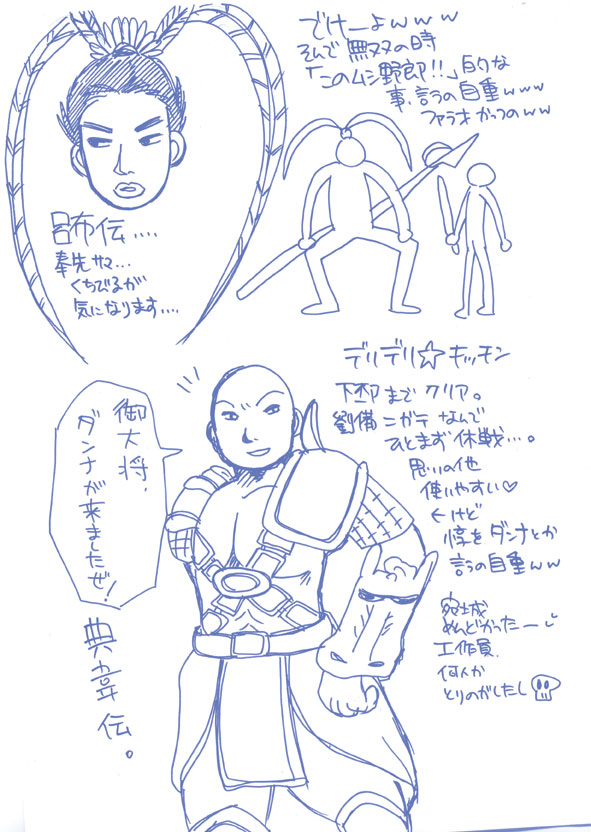 でけーよwww
そんで無双の時
「このムシ野郎!!」的な
事、言うの自重www
ファラオかっつのww
呂布伝....
奉先サマ...
くちびるが
気になります....
デリデリ☆キッチン
下邳までクリア。
劉備ニガテなんで
ひとまず休戦…。
思いの他
使いやすい♡
←けど
惇をダンナとか
言うの自重ww
宛城
めんどかったー
工作員、
何人か
とりのがしたし
御大将、
ダンナが来ましたぜ!
典韋伝。